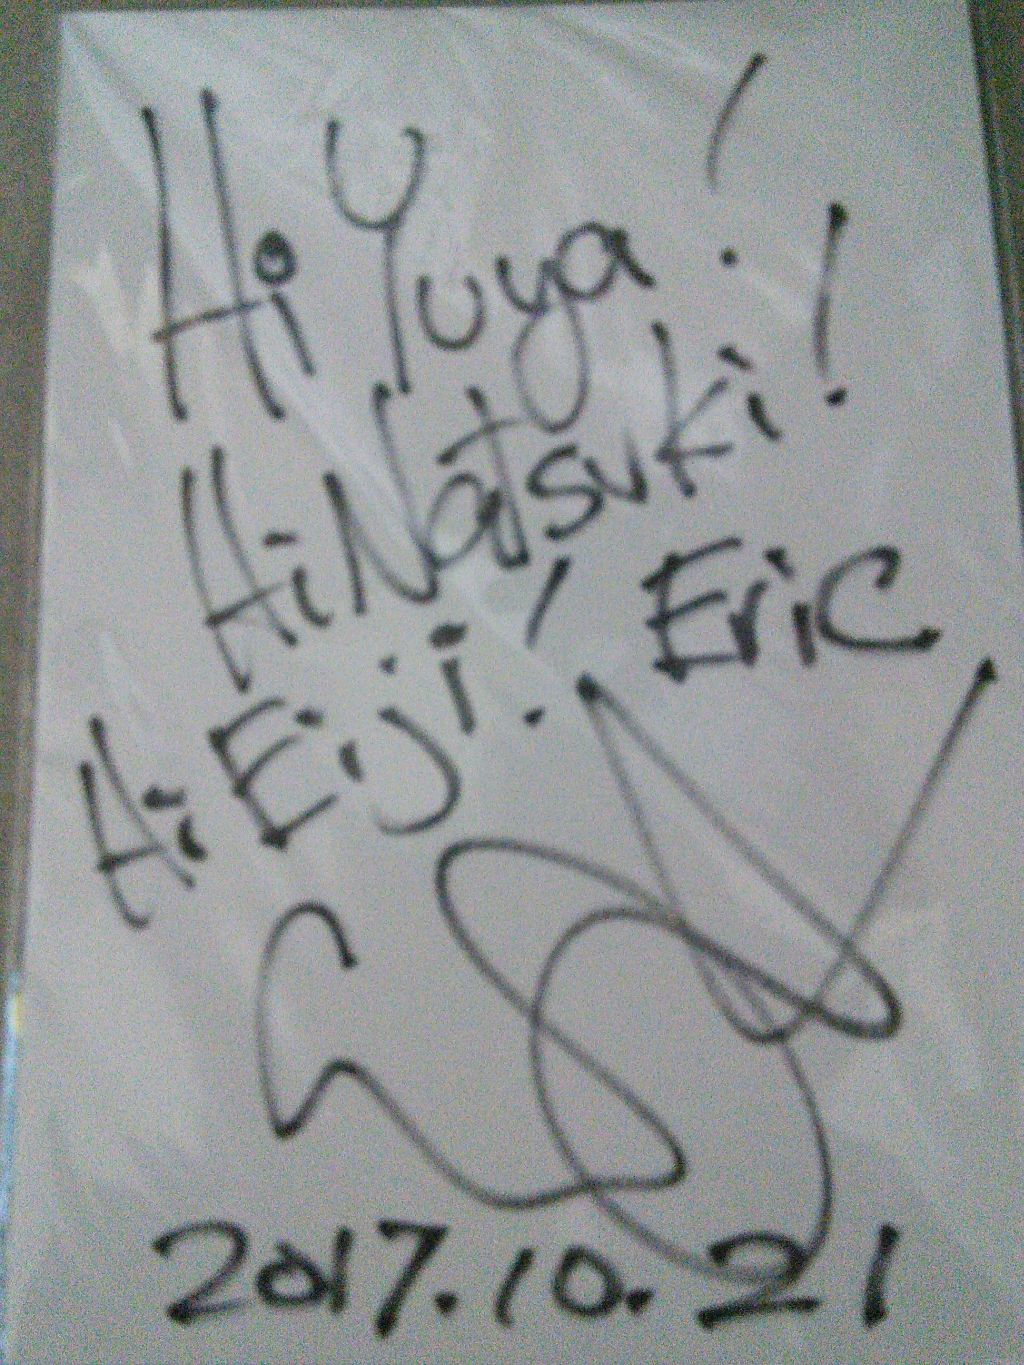 Hi Yuya!
Hi Natsuki!
Hi Eiji! Eric
2017.10.21